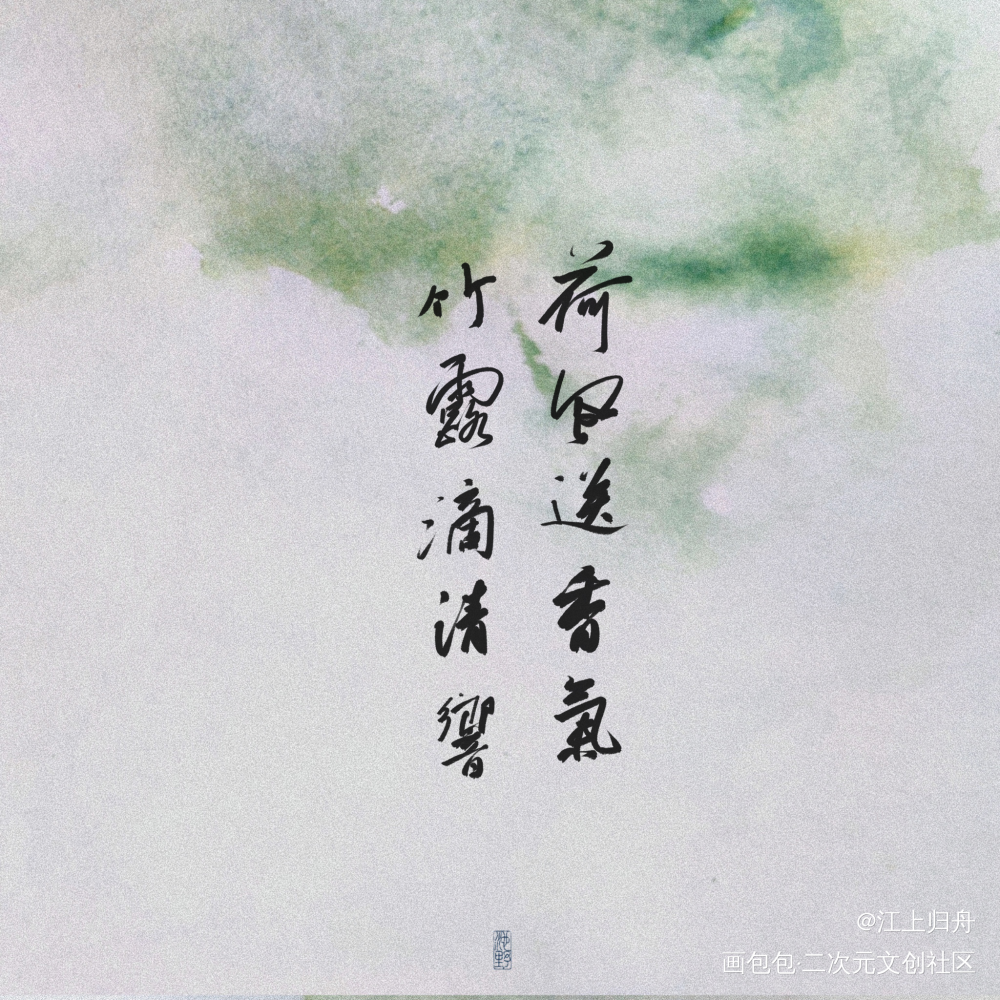 荷風送香氣
竹露滴清響
@江上归舟
画包包·二次元文创社区